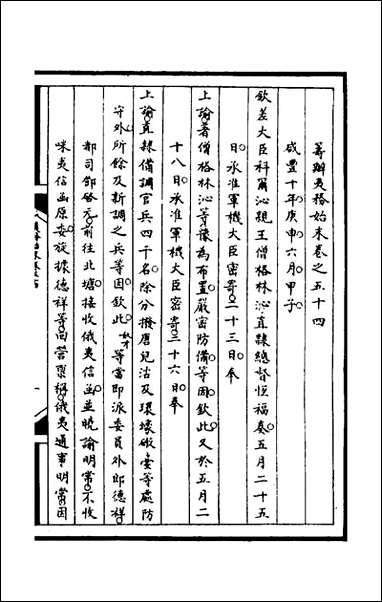 籌辦夷務始末卷之五十四
咸豐十年庚申六月甲子
欽差大臣科爾沁親王僧格林沁直隸總督恒福奏五月二十五
日承准軍機大臣密寄二十三日奉
上諭著僧格林沁等豫為布置嚴密防備等因欽此又於五月二
十八日承准軍機大臣密寄二十六日奉
上諭直隸備調官兵四千名除分撥唐兒沽及環壕礮臺等處防
守外所餘及新調之兵等因欽此奴才等當即派委員外郎德祥
都司鄧啟元前往北塘接收俄夷信函並曉諭明常不收
咪夷信函原委旋據德祥等回營稟稱俄夷通事明常因